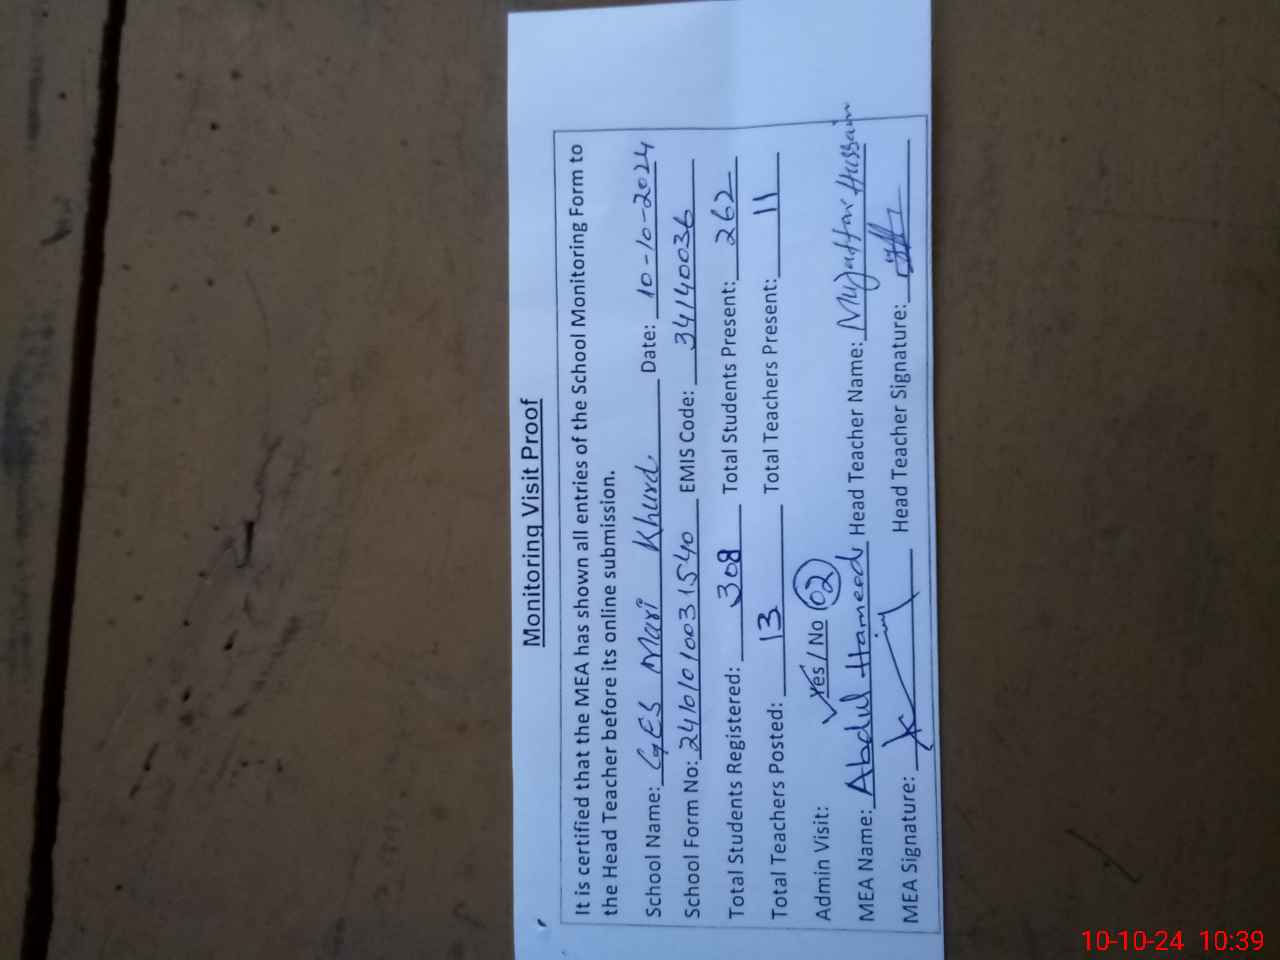 Monitoring Visit Proof
It is certified that the MEA has shown all entries of the School Monitoring Form to
the Head Teacher before its online submission.
School Name: GES Mari Khurd Date: 10-10-2024
School Form No: 24101010031540 EMIS Code: 34140036
Total Students Registered: 308 Total Students Present: 262
Total Teachers Posted: 13 Total Teachers Present: 11
Admin Visit: Yes / No 02
MEA Name: Abdul Hameed Head Teacher Name: Muzaffar Hussain
MEA Signature: Head Teacher Signature:
10-10-24 10:39